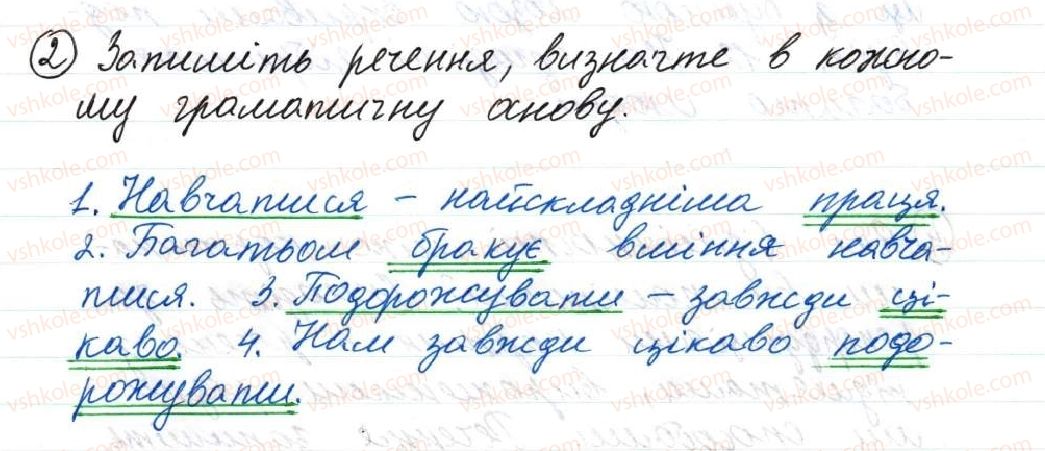 ② Запишіть речення, визначте в кожно-
му граматичну основу.
1. Навчатися – найскладніша праця.
2. Багатьом бракує вміння навча-
тися. 3. Подорожувати – завжди ці-
каво. 4. Нам завжди цікаво подо-
рожувати.